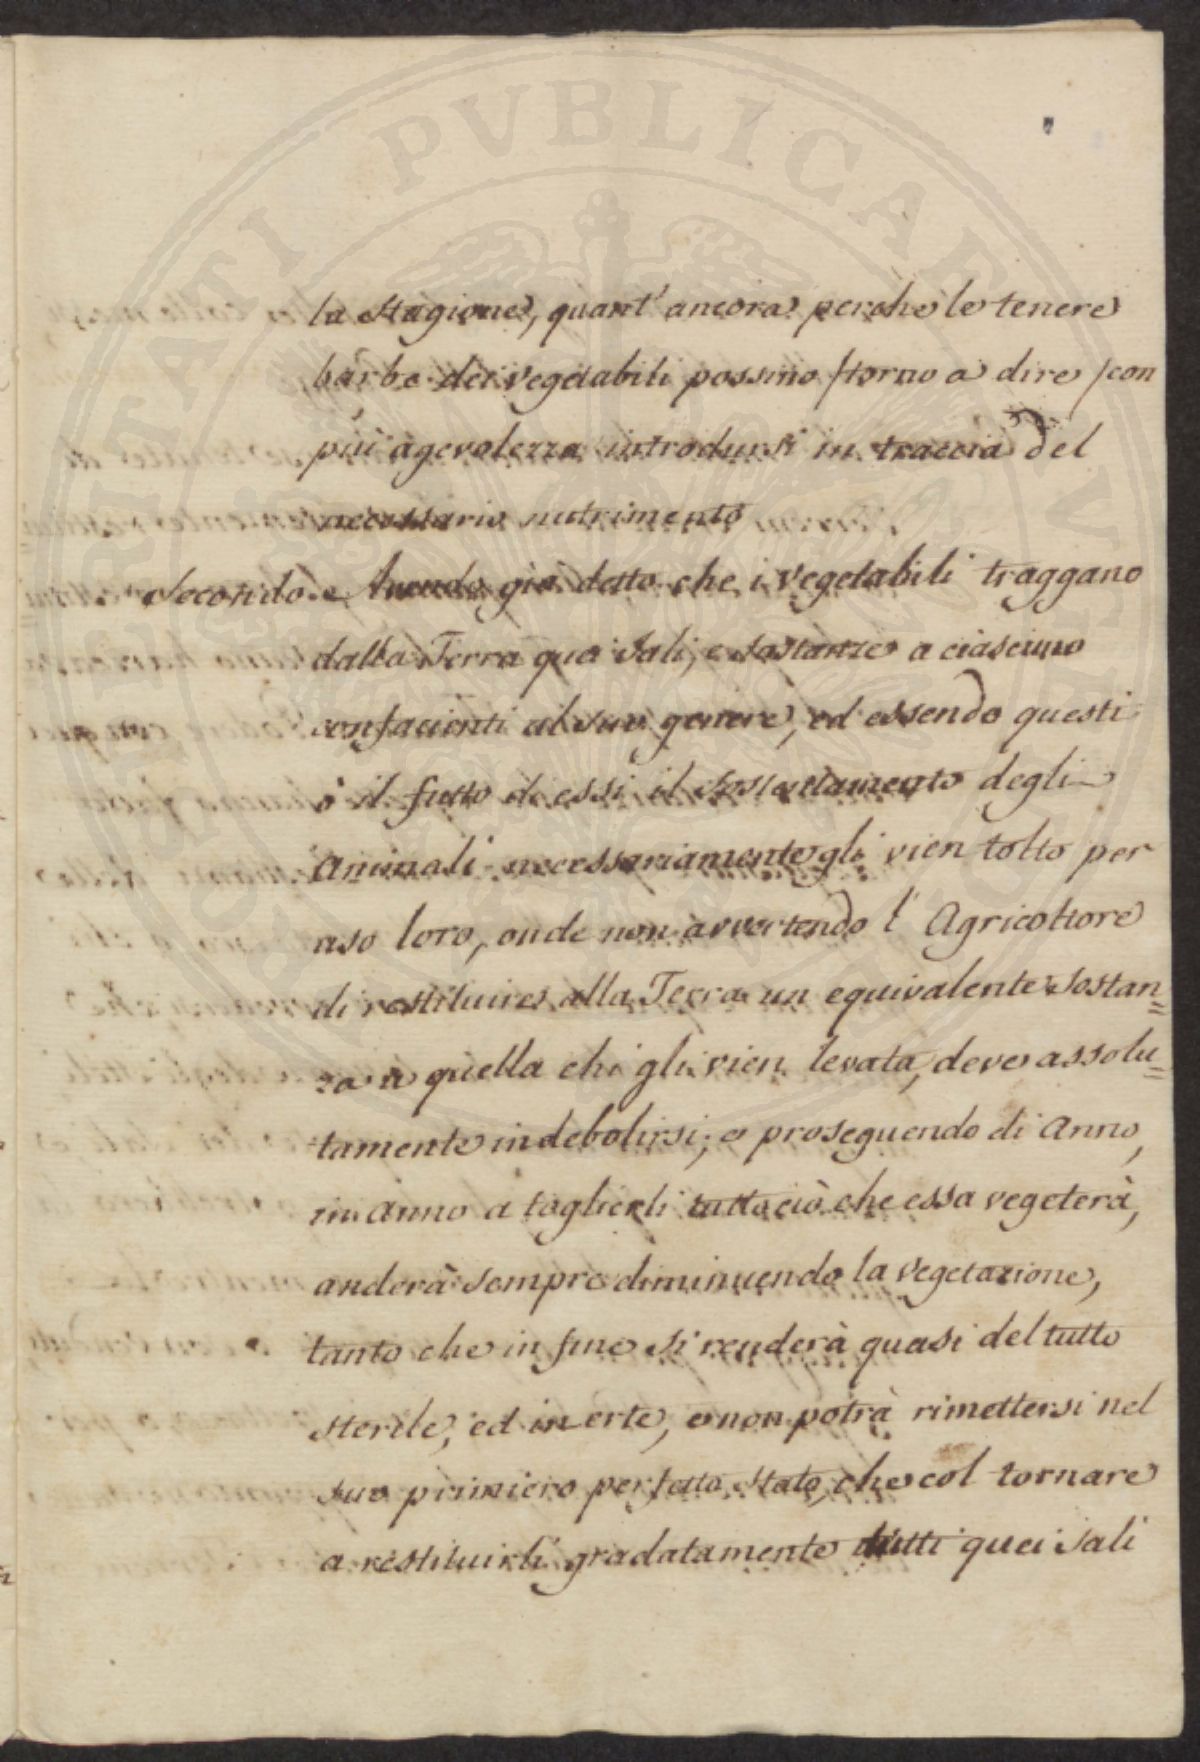 PVBLICAE
la Stagione, quant' ancora perche le tenere
barbe dei vegetabili possino /torno a dire/ con
più agevolezza introdursi in traccia del
necessario nutrimento
Secondo. e Avendo già detto che i vegetabili traggano
dalla Terra quei Sali, e sostanze a ciascuno
confacienti al suo genere, ed essendo questi
ò il frutto di essi il sostentamento degli
Animali necessariamente gli vien tolto per
uso loro, onde non avvertendo l' Agricoltore
di restituire alla Terra un equivalente sostan=
za a quella chi gli vien levata, deve assolu=
tamente indebolirsi, e proseguendo di Anno,
in Anno a toglierli tutto ciò che essa vegeterà,
anderà sempre diminuendo la vegetazione,
tanto che in fine si renderà quasi del tutto
sterile, ed inerte, e non potrà rimettersi nel
suo primiero perfetto stato, che col tornare
a restituirli gradatamente tutti quei sali